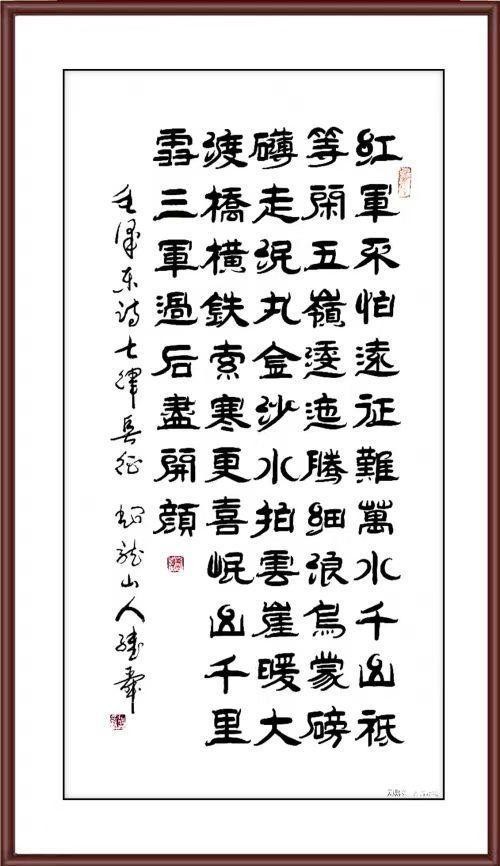 紅軍不怕遠征難萬水千山祗
等閑五嶺逶迤騰細浪烏蒙磅
礴走泥丸金沙水拍雲崖暖大
渡橋橫鉄索寒更喜岷山千里
雪三軍過后盡開顔
毛澤东诗七律長征 龍山人